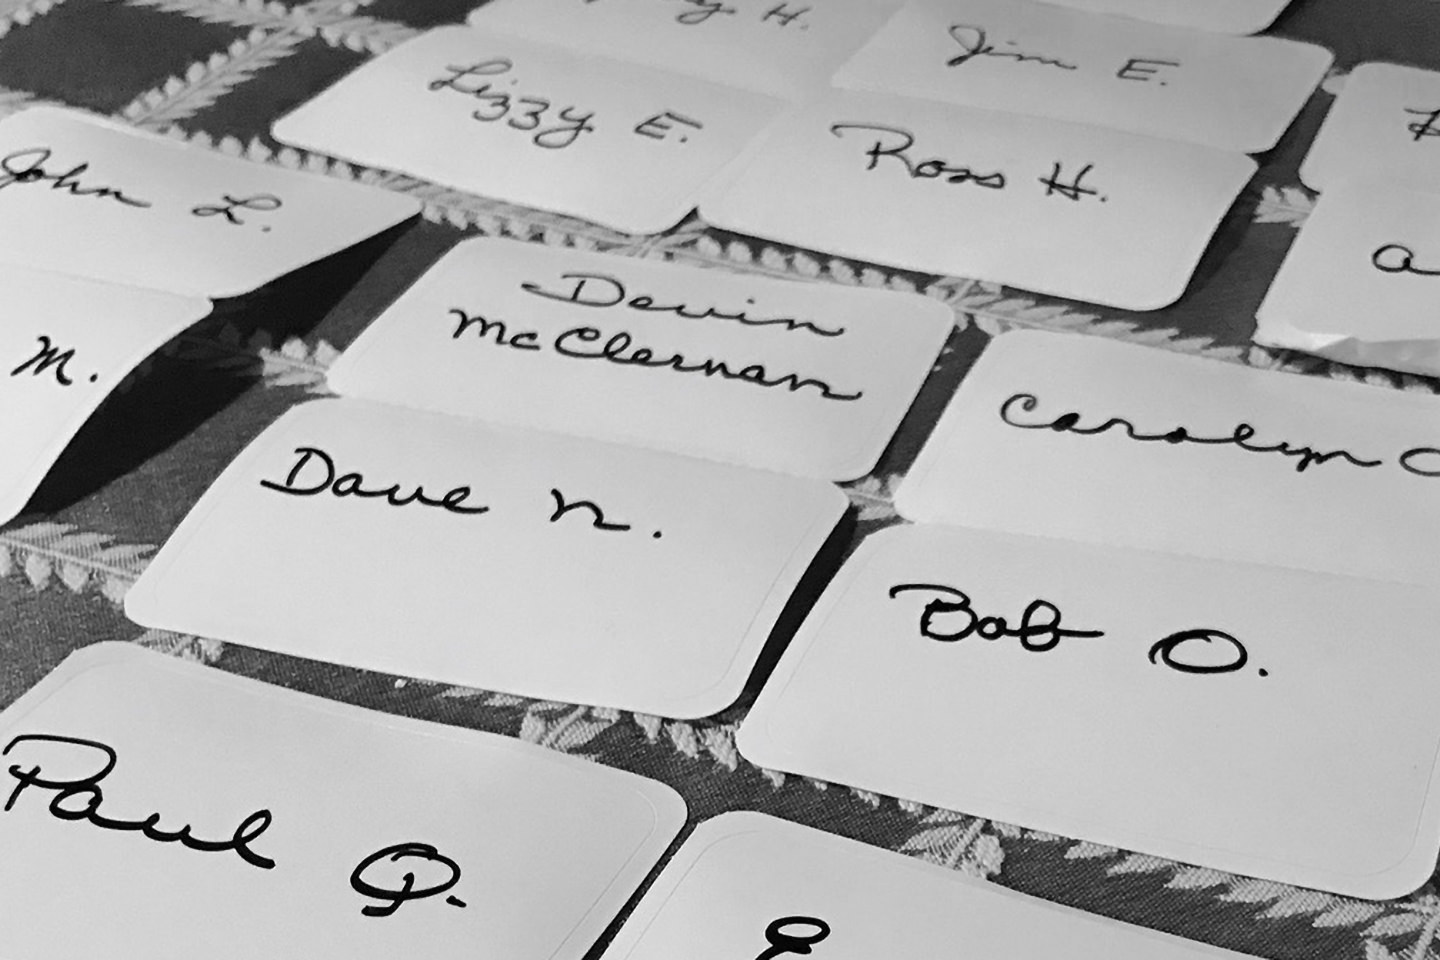 H.
Jim E.
Lizzy E.
Ross H.
John L.
a
Devin
McClernan
M.
Carolyn
Dave N.
Bob O.
Paul Q.